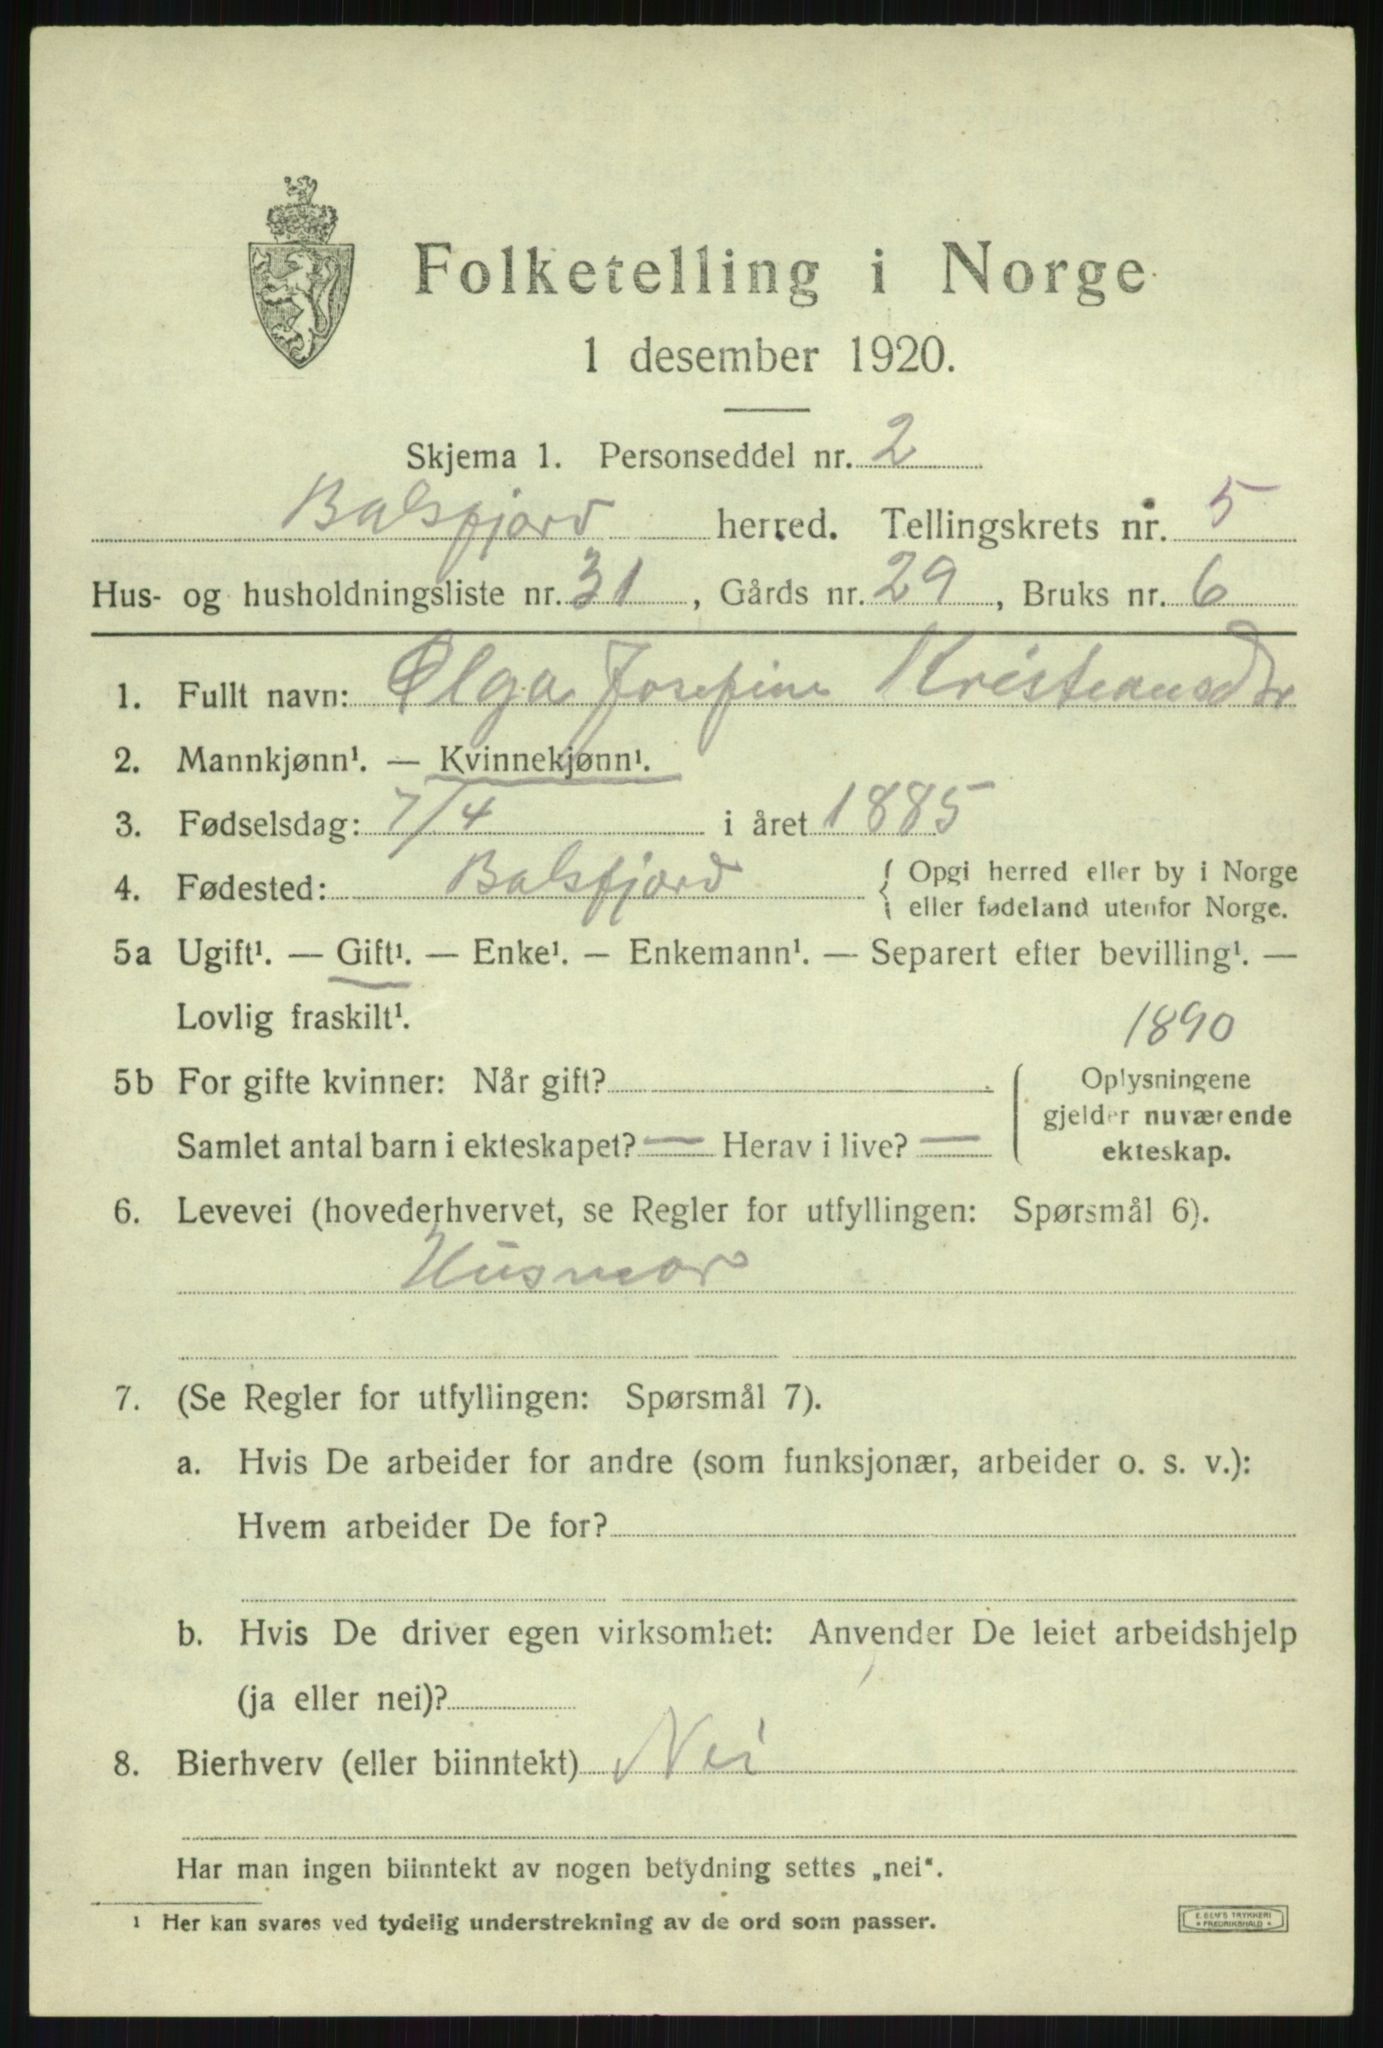 Folketelling i Norge
1 desember 1920.
Skjema 1. Personseddel nr. 2
Balsfjord herred. Tellingskrets nr. 5
Hus- og husholdningsliste nr. 31, Gårds nr. 29, Bruks nr. 6
1. Fullt navn: Olga Josefine Kristiansdtr
2. Mannkjønn¹. — Kvinnekjønn¹.
3. Fødselsdag: 7/4 i året 1885
4. Fødested: Balsfjord { Opgi herred eller by i Norge
eller fødeland utenfor Norge.
5a Ugift¹. — Gift¹. — Enke¹. — Enkemann¹. — Separert efter bevilling¹. —
Lovlig fraskilt¹.
1890
5b For gifte kvinner: Når gift? { Oplysningene
gjelder nuværende
Samlet antal barn i ekteskapet? — Herav i live? — ekteskap.
6. Levevei (hovederhvervet, se Regler for utfyllingen: Spørsmål 6).
Husmor
7. (Se Regler for utfyllingen: Spørsmål 7).
a. Hvis De arbeider for andre (som funksjonær, arbeider o. s. v.):
Hvem arbeider De for?
b. Hvis De driver egen virksomhet: Anvender De leiet arbeidshjelp
(ja eller nei)?
8. Bierhverv (eller biinntekt) Nei
Har man ingen biinntekt av nogen betydning settes „nei“.
¹ Her kan svares ved tydelig understrekning av de ord som passer.
E. SEM'S TRYKKERI
* FREDRIKSHALD *